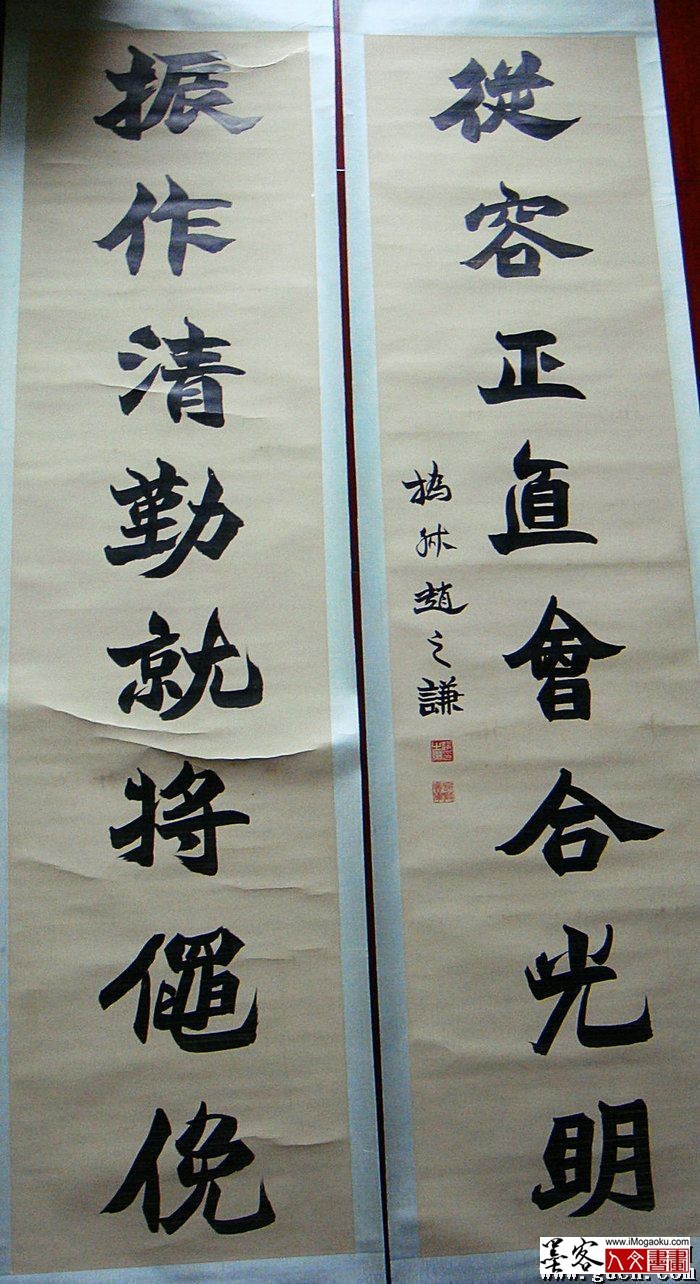 從容正直會合光明
撝叔趙之謙
振作清勤就將僶俛
墨客
www.iMogaoku.com
人文書畫